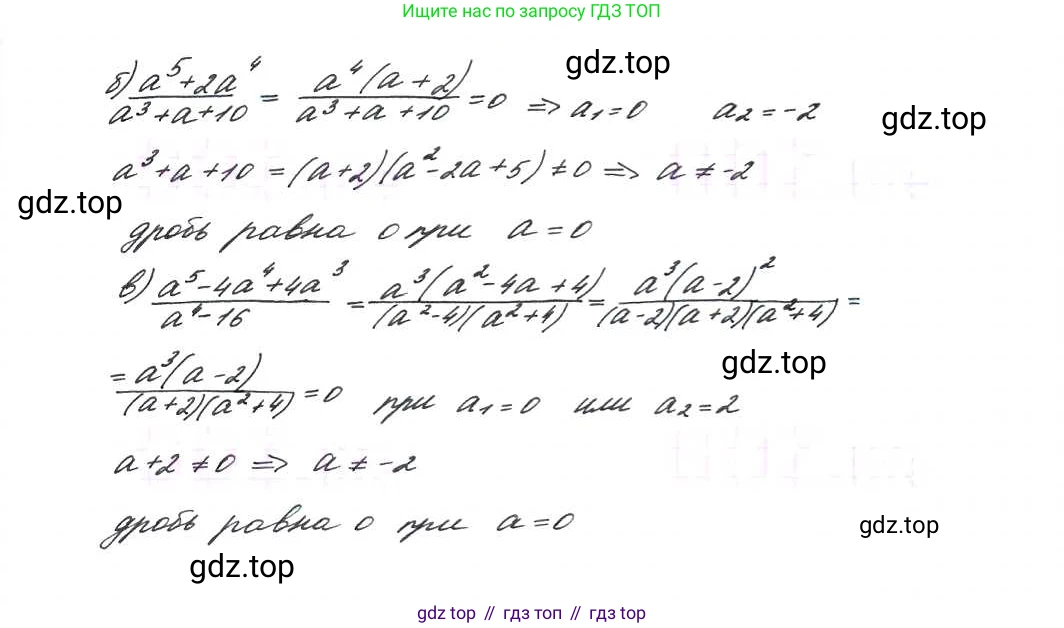 Ищите нас по запросу ГДЗ ТОП
gdz.top
б) (a⁵+2a⁴)/(a³+a+10) = (a⁴(a+2))/(a³+a+10) = 0 ⇒ a₁=0 a₂=-2
gdz.top
a³+a+10 = (a+2)(a²-2a+5) ≠ 0 ⇒ a ≠ -2
gdz.top
дробь равна 0 при a=0
в) (a⁵-4a⁴+4a³)/(a⁴-16) = (a³(a²-4a+4))/((a²-4)(a²+4)) = (a³(a-2)²)/((a-2)(a+2)(a²+4)) =
gdz.top
= (a³(a-2))/((a+2)(a²+4)) = 0 при a₁=0 или a₂=2
a+2 ≠ 0 ⇒ a ≠ -2
дробь равна 0 при a=0
gdz.top
gdz.top
gdz top // гдз топ // gdz top